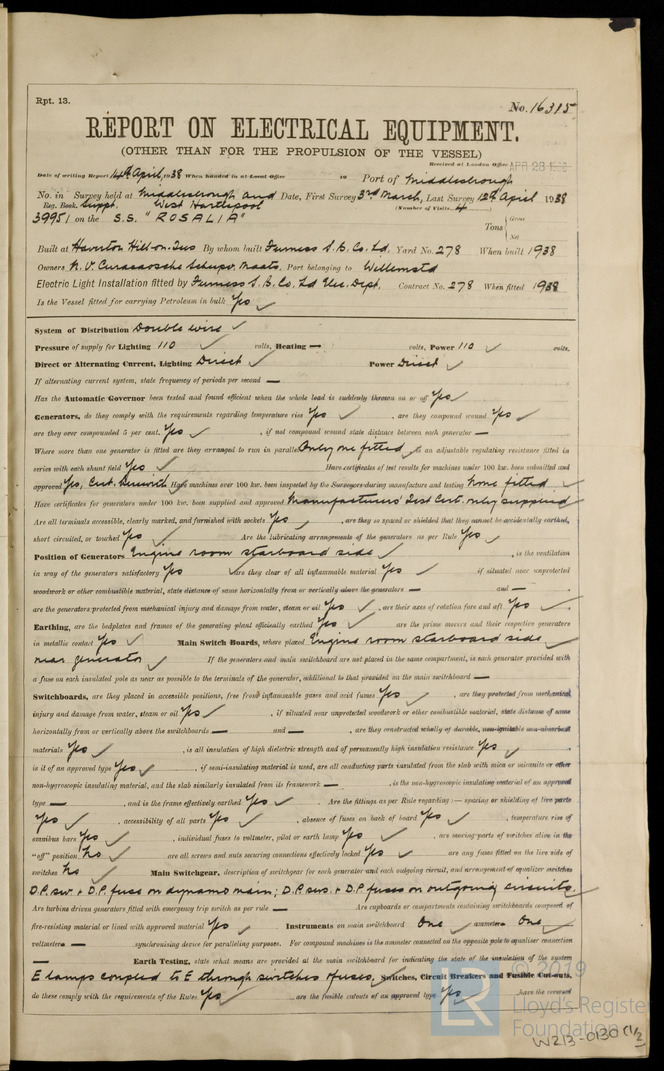 Rpt. 13.
No. 16315
REPORT ON ELECTRICAL EQUIPMENT.
(OTHER THAN FOR THE PROPULSION OF THE VESSEL)
Received at London Office APR 28 1938
Date of writing Report 14th April 1938 When handed in at Local Office 19 Port of Middlesbrough
No. in Survey held at Middlesbrough and Date, First Survey 3rd March, Last Survey 12th April 1938
Reg. Book. Suppt. West Hartlepool (Number of Visits 4)
39951 on the S.S. "ROSALIA" Tons { Gross Net
Built at Haverton Hill-on-Tees By whom built Furness S.B. Co. Ld. Yard No. 278 When built 1938
Owners N.V. Curacaosche Scheepv. Maats. Port belonging to Willemstad
Electric Light Installation fitted by Furness S.B. Co. Ld Elec. Dept. Contract No. 278 When fitted 1938
Is the Vessel fitted for carrying Petroleum in bulk Yes ✓
System of Distribution Double wire ✓
Pressure of supply for Lighting 110 ✓ volts, Heating — volts, Power 110 ✓ volts.
Direct or Alternating Current, Lighting Direct ✓ Power Direct ✓
If alternating current system, state frequency of periods per second —
Has the Automatic Governor been tested and found efficient when the whole load is suddenly thrown on or off Yes ✓
Generators, do they comply with the requirements regarding temperature rise Yes ✓, are they compound wound Yes ✓
are they over compounded 5 per cent. Yes ✓, if not compound wound state distance between each generator —
Where more than one generator is fitted are they arranged to run in parallel Only one fitted ✓, is an adjustable regulating resistance fitted in
series with each shunt field Yes ✓ Have certificates of test results for machines under 100 kw. been submitted and
approved Yes, Cert. Herewith Have machines over 100 kw. been inspected by the Surveyors during manufacture and testing None fitted ✓
Have certificates for generators under 100 kw. been supplied and approved Manufacturers' Test Cert. only supplied
Are all terminals accessible, clearly marked, and furnished with sockets Yes ✓, are they so spaced or shielded that they cannot be accidentally earthed,
short circuited, or touched Yes ✓ Are the lubricating arrangements of the generators as per Rule Yes ✓
Position of Generators Engine room starboard side ✓, is the ventilation
in way of the generators satisfactory Yes ✓ are they clear of all inflammable material Yes ✓ if situated near unprotected
woodwork or other combustible material, state distance of same horizontally from or vertically above the generators — and —
are the generators protected from mechanical injury and damage from water, steam or oil Yes ✓, are their axes of rotation fore and aft Yes ✓
Earthing, are the bedplates and frames of the generating plant efficiently earthed Yes ✓ are the prime movers and their respective generators
in metallic contact Yes ✓ Main Switch Boards, where placed Engine room starboard side
near generator ✓ If the generators and main switchboard are not placed in the same compartment, is each generator provided with
a fuse on each insulated pole as near as possible to the terminals of the generator, additional to that provided on the main switchboard —
Switchboards, are they placed in accessible positions, free from inflammable gases and acid fumes Yes ✓, are they protected from mechanical
injury and damage from water, steam or oil Yes ✓, if situated near unprotected woodwork or other combustible material, state distance of same
horizontally from or vertically above the switchboards — and —, are they constructed wholly of durable, non-ignitable non-absorbent
materials Yes ✓, is all insulation of high dielectric strength and of permanently high insulation resistance Yes ✓
is it of an approved type Yes ✓, if semi-insulating material is used, are all conducting parts insulated from the slab with mica or micanite or other
non-hygroscopic insulating material, and the slab similarly insulated from its framework —, is the non-hygroscopic insulating material of an approved
type —, and is the frame effectively earthed Yes ✓ Are the fittings as per Rule regarding :— spacing or shielding of live parts
Yes ✓, accessibility of all parts Yes ✓, absence of fuses on back of board Yes ✓, temperature rise of
omnibus bars Yes ✓, individual fuses to voltmeter, pilot or earth lamp Yes ✓, are moving parts of switches alive in the
"off" position No ✓ are all screws and nuts securing connections effectively locked Yes ✓ are any fuses fitted on the live side of
switches No ✓ Main Switchgear, description of switchgear for each generator and each outgoing circuit, and arrangement of equalizer switches
D.P. sw. + D.P. fuses on dynamo main; D.P. sws. + D.P. fuses on outgoing circuits.
Are turbine driven generators fitted with emergency trip switch as per rule — Are cupboards or compartments containing switchboards composed of
fire-resisting material or lined with approved material Yes ✓ Instruments on main switchboard One ✓ ammeters One ✓
voltmeters — synchronising device for paralleling purposes. For compound machines is the ammeter connected on the opposite pole to equaliser connection
— Earth Testing, state what means are provided at the main switchboard for indicating the state of the insulation of the system
E lamps coupled to E through switches & fuses, Switches, Circuit Breakers and Fusible Cut-outs,
do these comply with the requirements of the Rules Yes ✓ are the fusible cutouts of an approved type Yes ✓ have the reversed
© 2019
LR
Lloyd's Register
Foundation
W213-0130 (1/2)